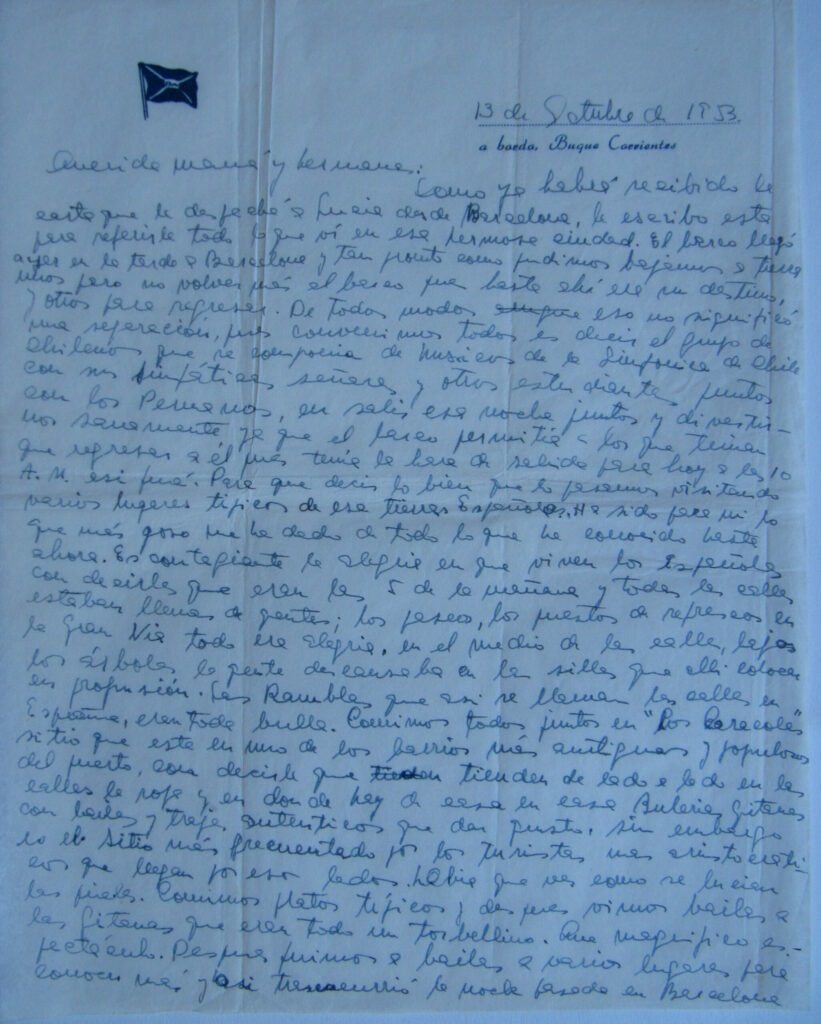 13 de Octubre de 1953.
a bordo, Buque Corrientes
Querida mamá y hermana:
Como ya habrá recibido la
carta que le despaché a Lucia desde Barcelona, le escribo esta
para referirle todo lo que ví en esa hermosa ciudad. El barco llegó
ayer en la tarde a Barcelona y tan pronto como pudimos bajamos a tierra
unos para no volver más al barco pues hasta ahi era su destino,
y otros para regresar. De todos modos aunque eso no significó
una separación, pues convenimos todos es decir el grupo de
chilenos que se componia de Musicos de la Sinfonica de Chile
con sus simpáticas señoras y otros estudiantes juntos
con los Peruanos, en salir esa noche juntos y divertir-
nos sanamente, ya que el barco permitia a los que tenian
que regresar a él pues tenia la hora de salida para hoy a las 10
A.M. asi fué. Para que decir lo bien que lo pasamos visitando
varios lugares tipicos de esa tierra Española. Ha sido para mi lo
que más gozo me ha dado de todo lo que he conocido hasta
ahora. Es contagiante la alegria en que viven los Españoles
con decirles que eran las 5 de la mañana y todas las calles
estaban llenas de gentes; los paseos, los puestos de refrescos en
la Gran Via todo era alegria, en el medio de las calles, bajo
los árboles la gente descansaba en las sillas que alli colocan
en profusión. Las Ramblas que asi se llaman las calles en
España, eran toda bulla. Comimos todos juntos en "Los Caracoles"
sitio que esta en uno de los barrios más antiguos y populosos
del puerto, con decirle que tienden de lado a lado en las
calles la ropa y en donde hay de casa en casa Buleria, Gitanas
con bailes y trajes autenticos que dan gusto, sin embargo
es el sitio más frecuentado por los turistas mas aristocráti-
cos que llegan por esos lados. Habia que ver como se lucian
las pieles. Comimos platos tipicos y despues vimos bailes a
las Gitanas que eran todo un torbellino. Que magnifico es-
pectáculo. Despues fuimos a bailar a varios lugares para
conocer más y asi transcurrió la noche pasada en Barcelona